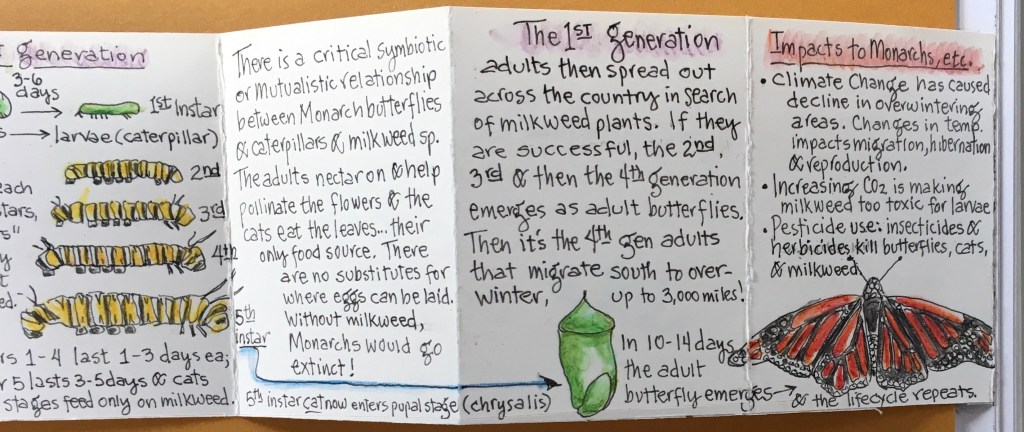 generation
3-6
days
1st Instar
larvae (caterpillar)
2nd
each
stars,
3rd
4th
5th
instar
rs 1-4 last 1-3 days ea;
r 5 lasts 3-5 days & cats
stages feed only on milkweed.
There is a critical symbiotic
or Mutualistic relationship
between Monarch butterflies
& caterpillars & milkweed sp.
The adults nectar on & help
pollinate the flowers & the
cats eat the leaves... their
only food source. There
are no substitutes for
where eggs can be laid.
Without milkweed,
Monarchs would go
extinct!
5th instar cat now enters pupal stage (chrysalis)
The 1st generation
adults then spread out
across the country in search
of milkweed plants. If they
are successful, the 2nd,
3rd & then the 4th generation
emerges as adult butterflies.
Then it's the 4th gen adults
that migrate south to over-
winter, up to 3,000 miles!
In 10-14 days
the adult
butterfly emerges
& the lifecycle repeats.
Impacts to Monarchs, etc.
• Climate Change has caused
decline in overwintering
areas. Changes in temp.
impacts migration, hibernation
& reproduction.
• Increasing CO2 is making
milkweed too toxic for larvae
• Pesticide use: insecticides &
herbicides kill butterflies, cats,
& milkweed